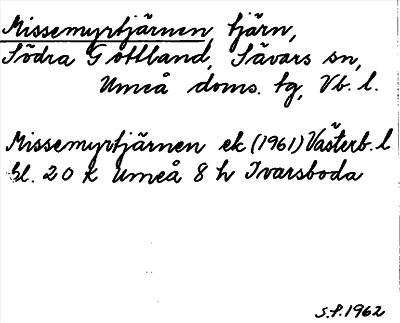 Missemyrtjärnen, tjärn,
Södra Gottland, Sävars sn,
Umeå doms. tg, Vb. l.
Missemyrtjärnen ek (1961) Västerb. l
bl. 20 K Umeå 8 h Ivarsboda
S.P. 1962